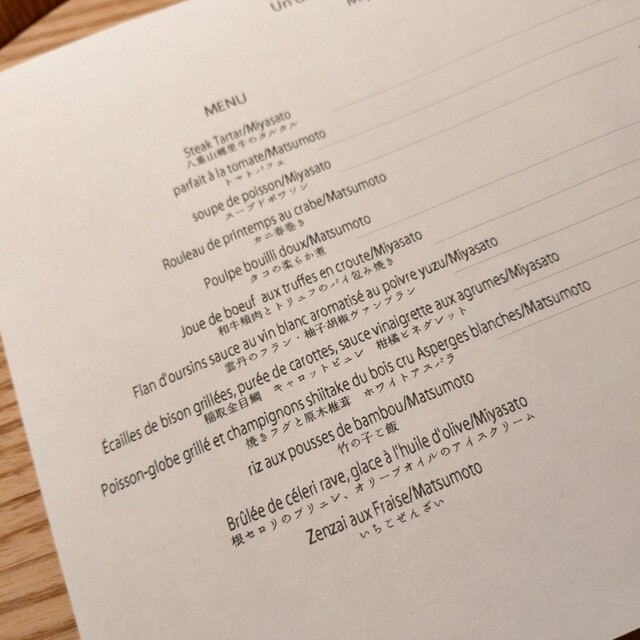 MENU
Steak Tartar/Miyasato
八重山郷里牛のタルタル
parfait à la tomate/Matsumoto
トマトパフェ
soupe de poisson/Miyasato
スープドポワソン
Rouleau de printemps au crabe/Matsumoto
カニ春巻き
Poulpe bouilli doux/Matsumoto
タコの柔らか煮
Joue de boeuf aux truffes en croute/Miyasato
和牛頬肉とトリュフのパイ包み焼き
Flan d'oursins sauce au vin blanc aromatisé au poivre yuzu/Miyasato
雲丹のフラン・柚子胡椒ヴァンブラン
Écailles de bison grillées, purée de carottes, sauce vinaigrette aux agrumes/Miyasato
稲取金目鯛 キャロットピュレ 柑橘ビネグレット
Poisson-globe grillé et champignons shiitake du bois cru Asperges blanches/Matsumoto
焼きフグと原木椎茸 ホワイトアスパラ
riz aux pousses de bambou/Matsumoto
竹の子ご飯
Brûlée de céleri rave, glace à l'huile d'olive/Miyasato
根セロリのブリュレ、オリーブオイルのアイスクリーム
Zenzai aux Fraise/Matsumoto
いちごぜんざい